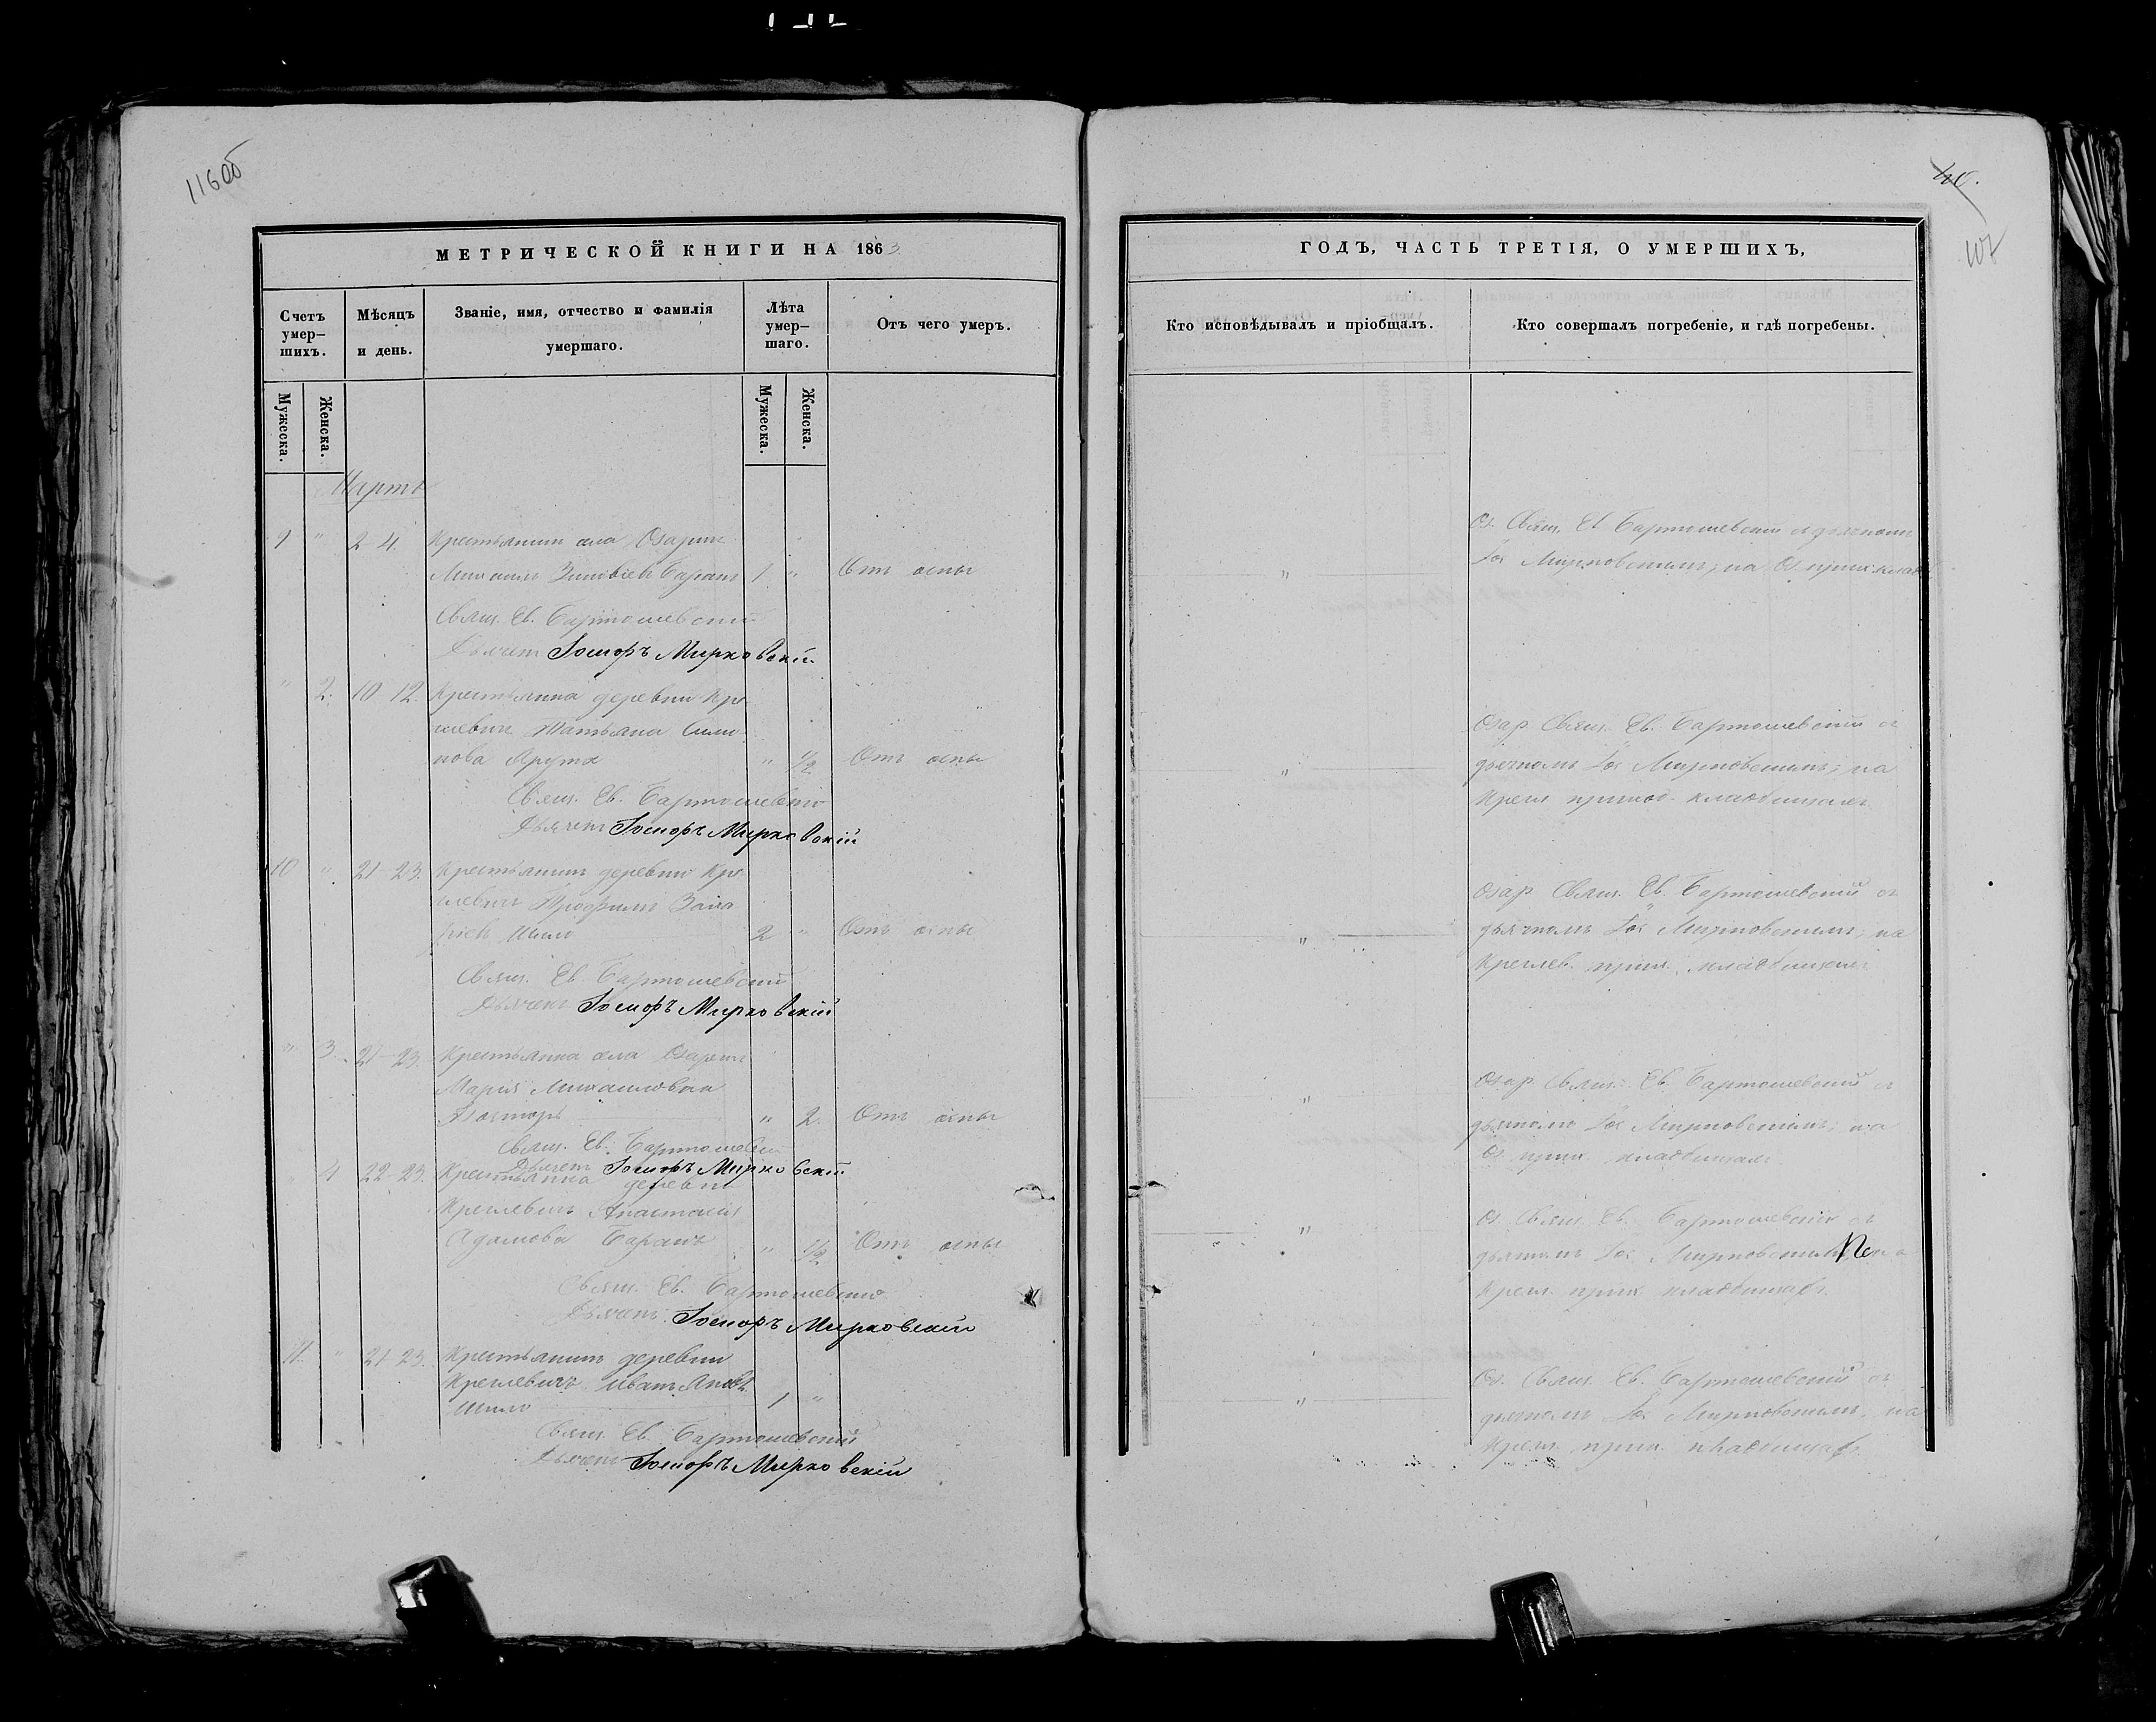 116об
МЕТРИЧЕСКОЙ КНИГИ НА 1863
Счетъ умер-шихъ.
Мѣсяцъ и день.
Званіе, имя, отчество и фамилія умершаго.
Лѣта умер-шаго.
Отъ чего умеръ.
Мужеска.
Женска.
Мужеска.
Женска.
Мартъ
9 " 2 4. Крестьянинъ села Озаричъ
Михаилъ Зиновіевъ Баранъ 1 " Отъ оспы
Свящ. Ев. Бартошевскій
Дьячекъ Іосифъ Мирковскій
" 2. 10 12. Крестьянка деревни Кре
шевичъ Татьяна Симо
нова " 1/2 Отъ оспы
Свящ. Ев. Бартошевскій
Дьячекъ Іосифъ Мирковскій
10 " 21 23. Крестьянинъ деревни Кре
Трофимъ Заха
ріевъ Шило 2 " Отъ оспы
Свящ. Ев. Бартошевскій
Дьячекъ Іосифъ Мирковскій
" 3. 21 23. Крестьянка села
Марія Михаиловна
" 2. Отъ оспы
Свящ. Ев. Бартошевскій
Дьячекъ Іосифъ Мирковскій
" 4 22 23. Крестьянка деревни
Анастасія
Адамова Баранъ " 1/2 Отъ оспы
Свящ. Ев. Бартошевскій
Дьячекъ Іосифъ Мирковскій
11. " 21 23. Крестьянинъ деревни
Иванъ
Шило 1 "
Свящ. Ев. Бартошевскій
Дьячекъ Іосифъ Мирковскій
107
ГОДЪ, ЧАСТЬ ТРЕТІЯ, О УМЕРШИХЪ,
Кто исповѣдывалъ и пріобщалъ.
Кто совершалъ погребеніе, и гдѣ погребены.
Оз. Свящ. Ев. Бартошевскій съ дьячкомъ
" Іос. Мирковскимъ, на Оз. прих. клад
Озар. Свящ. Ев. Бартошевскій съ
" дьячкомъ Іос. Мирковскимъ, на
приход. кладбищахъ
Озар. Свящ. Ев. Бартошевскій съ
" дьячкомъ Іос. Мирковскимъ, на
прих. кладбищахъ
Озар. Свящ. Ев. Бартошевскій съ
" дьячкомъ Іос. Мирковскимъ, на
Оз. прих. кладбищахъ
Оз. Свящ. Ев. Бартошевскій съ
" дьячкомъ Іос. Мирковскимъ на
прих. кладбищахъ
Оз. Свящ. Ев. Бартошевскій съ
" дьячкомъ Іос. Мирковскимъ, на
прих. кладбищахъ